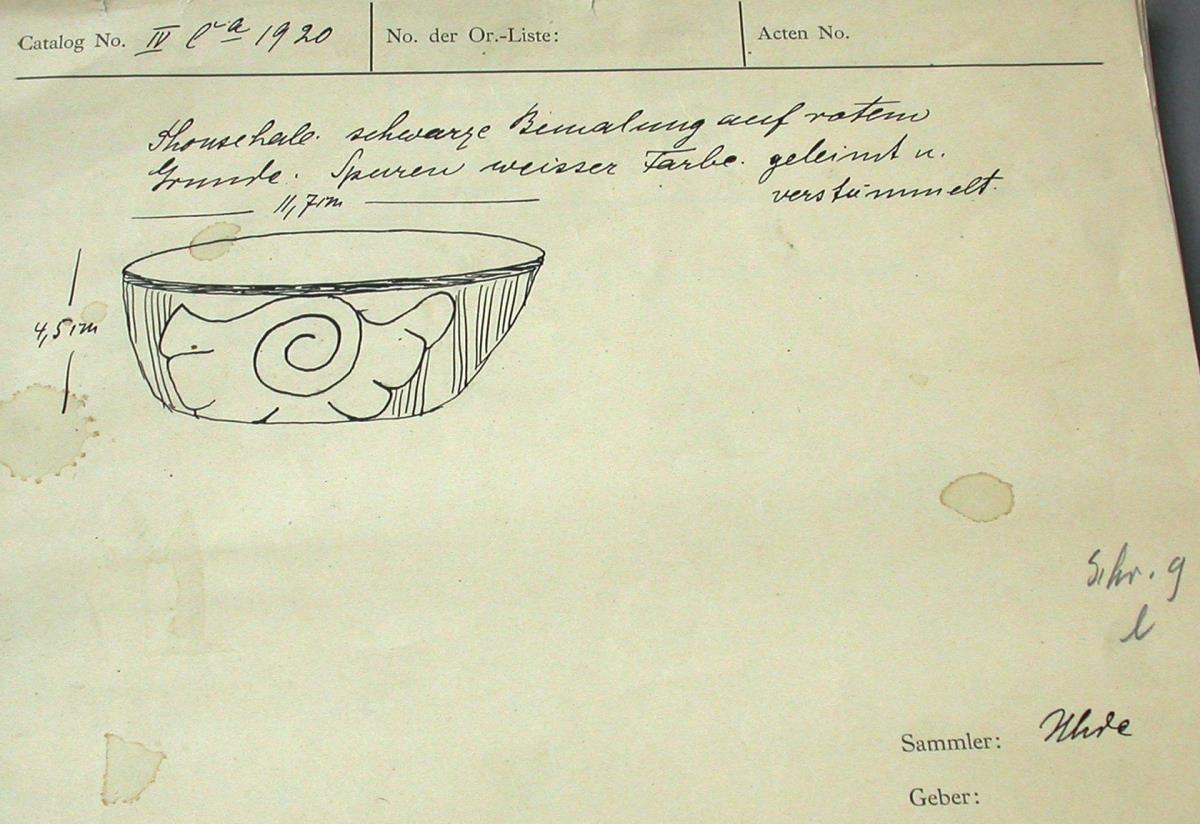 Catalog No. IV Ca 1920 No. der Or.-Liste: Acten No.
Thonschale. schwarze Bemalung auf rotem
Grunde. Spuren weisser Farbe. geleimt u.
verstümmelt.
11,7 cm
4,5 cm
Schr. 9
l
Sammler: Uhde
Geber: